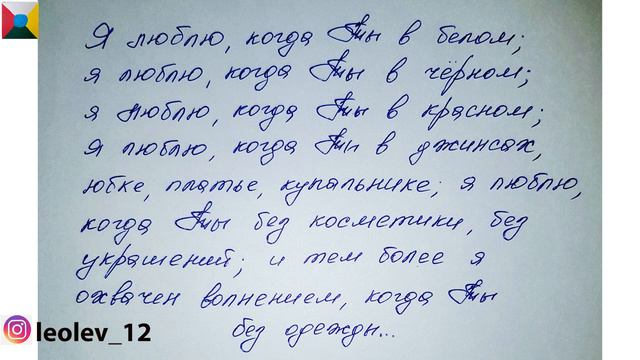 Я люблю, когда Ты в белом;
я люблю, когда Ты в чёрном;
я люблю, когда Ты в красном;
я люблю, когда Ты в джинсах,
юбке, платье, купальнике; я люблю,
когда Ты без косметики, без
украшений; и тем более я
охвачен волнением, когда Ты
без одежды...
leolev_12